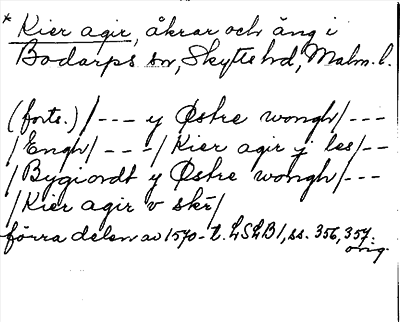 * Kier agir, åkrar och äng i
Bodarps sn, Skytts hd, Malm. l.
(forts.) /--- y Østre wongh/---
/Engh/ ---/Kier agir y les/--
/Bygiordt y Østre wongh/---
/Kier agir v skr/
förra delen av 1570-t. LSLB1, ss. 356, 357.
orig.